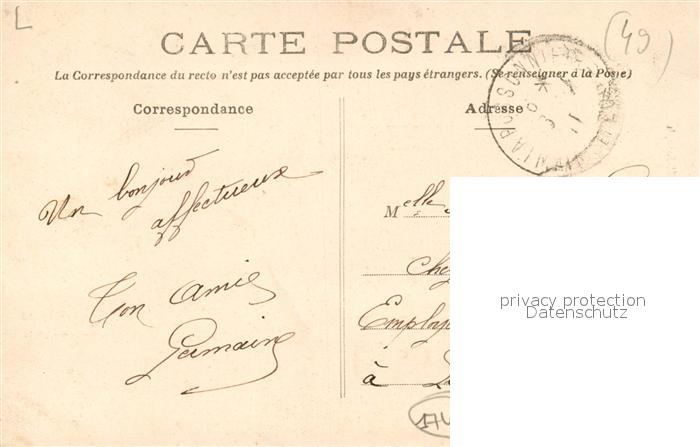 L
(49)
CARTE POSTALE
La Correspondance du recto n'est pas acceptée par tous les pays étrangers. (Se renseigner à la Poste)
Correspondance
Adresse
Un bonjour
affectueux
Ton amie
Germaine
Melle
Chez
Employ
à
174
privacy protection
Datenschutz